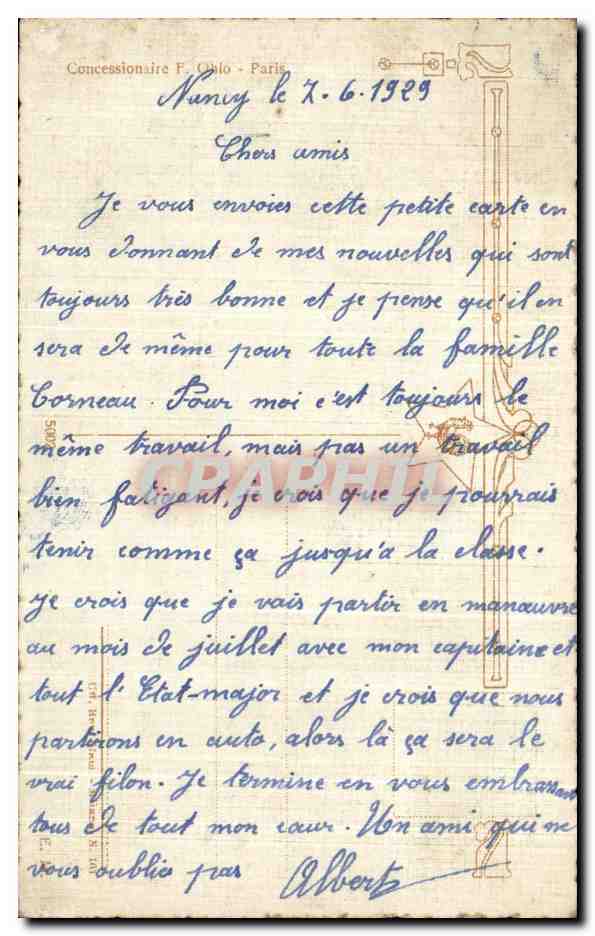 Concessionaire F. Oblo - Paris
Nancy le 7.6.1929
Chers amis
Je vous envoies cette petite carte en
vous donnant de mes nouvelles qui sont
toujours très bonne et je pense qu'il en
sera de même pour toute la famille
Corneau. Pour moi c'est toujours le
même travail, mais pas un travail
bien fatigant, je crois que je pourrais
tenir comme ça jusqu'a la classe.
Je crois que je vais partir en manœuvre
au mois de juillet avec mon capitaine et
tout l'Etat-major et je crois que nous
partirons en auto, alors là ça sera le
vrai filon. Je termine en vous embrassant
tous de tout mon cœur. Un ami qui ne
vous oublie pas Albert
CPAPHIL